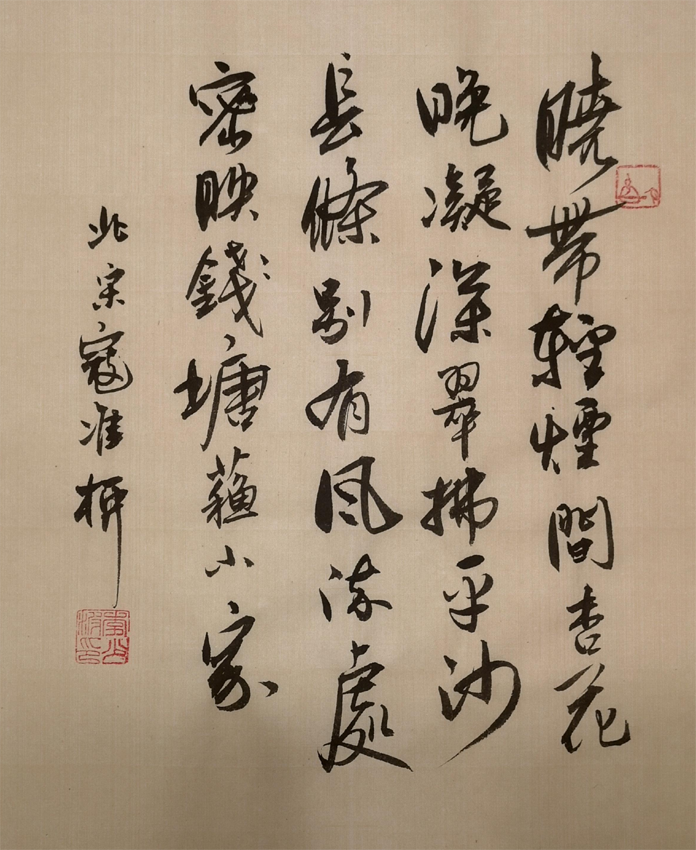 曉帶輕煙間杏花
晚凝深翠拂平沙
長條別有風流處
密映錢塘蘇小家
北宋寇准柳